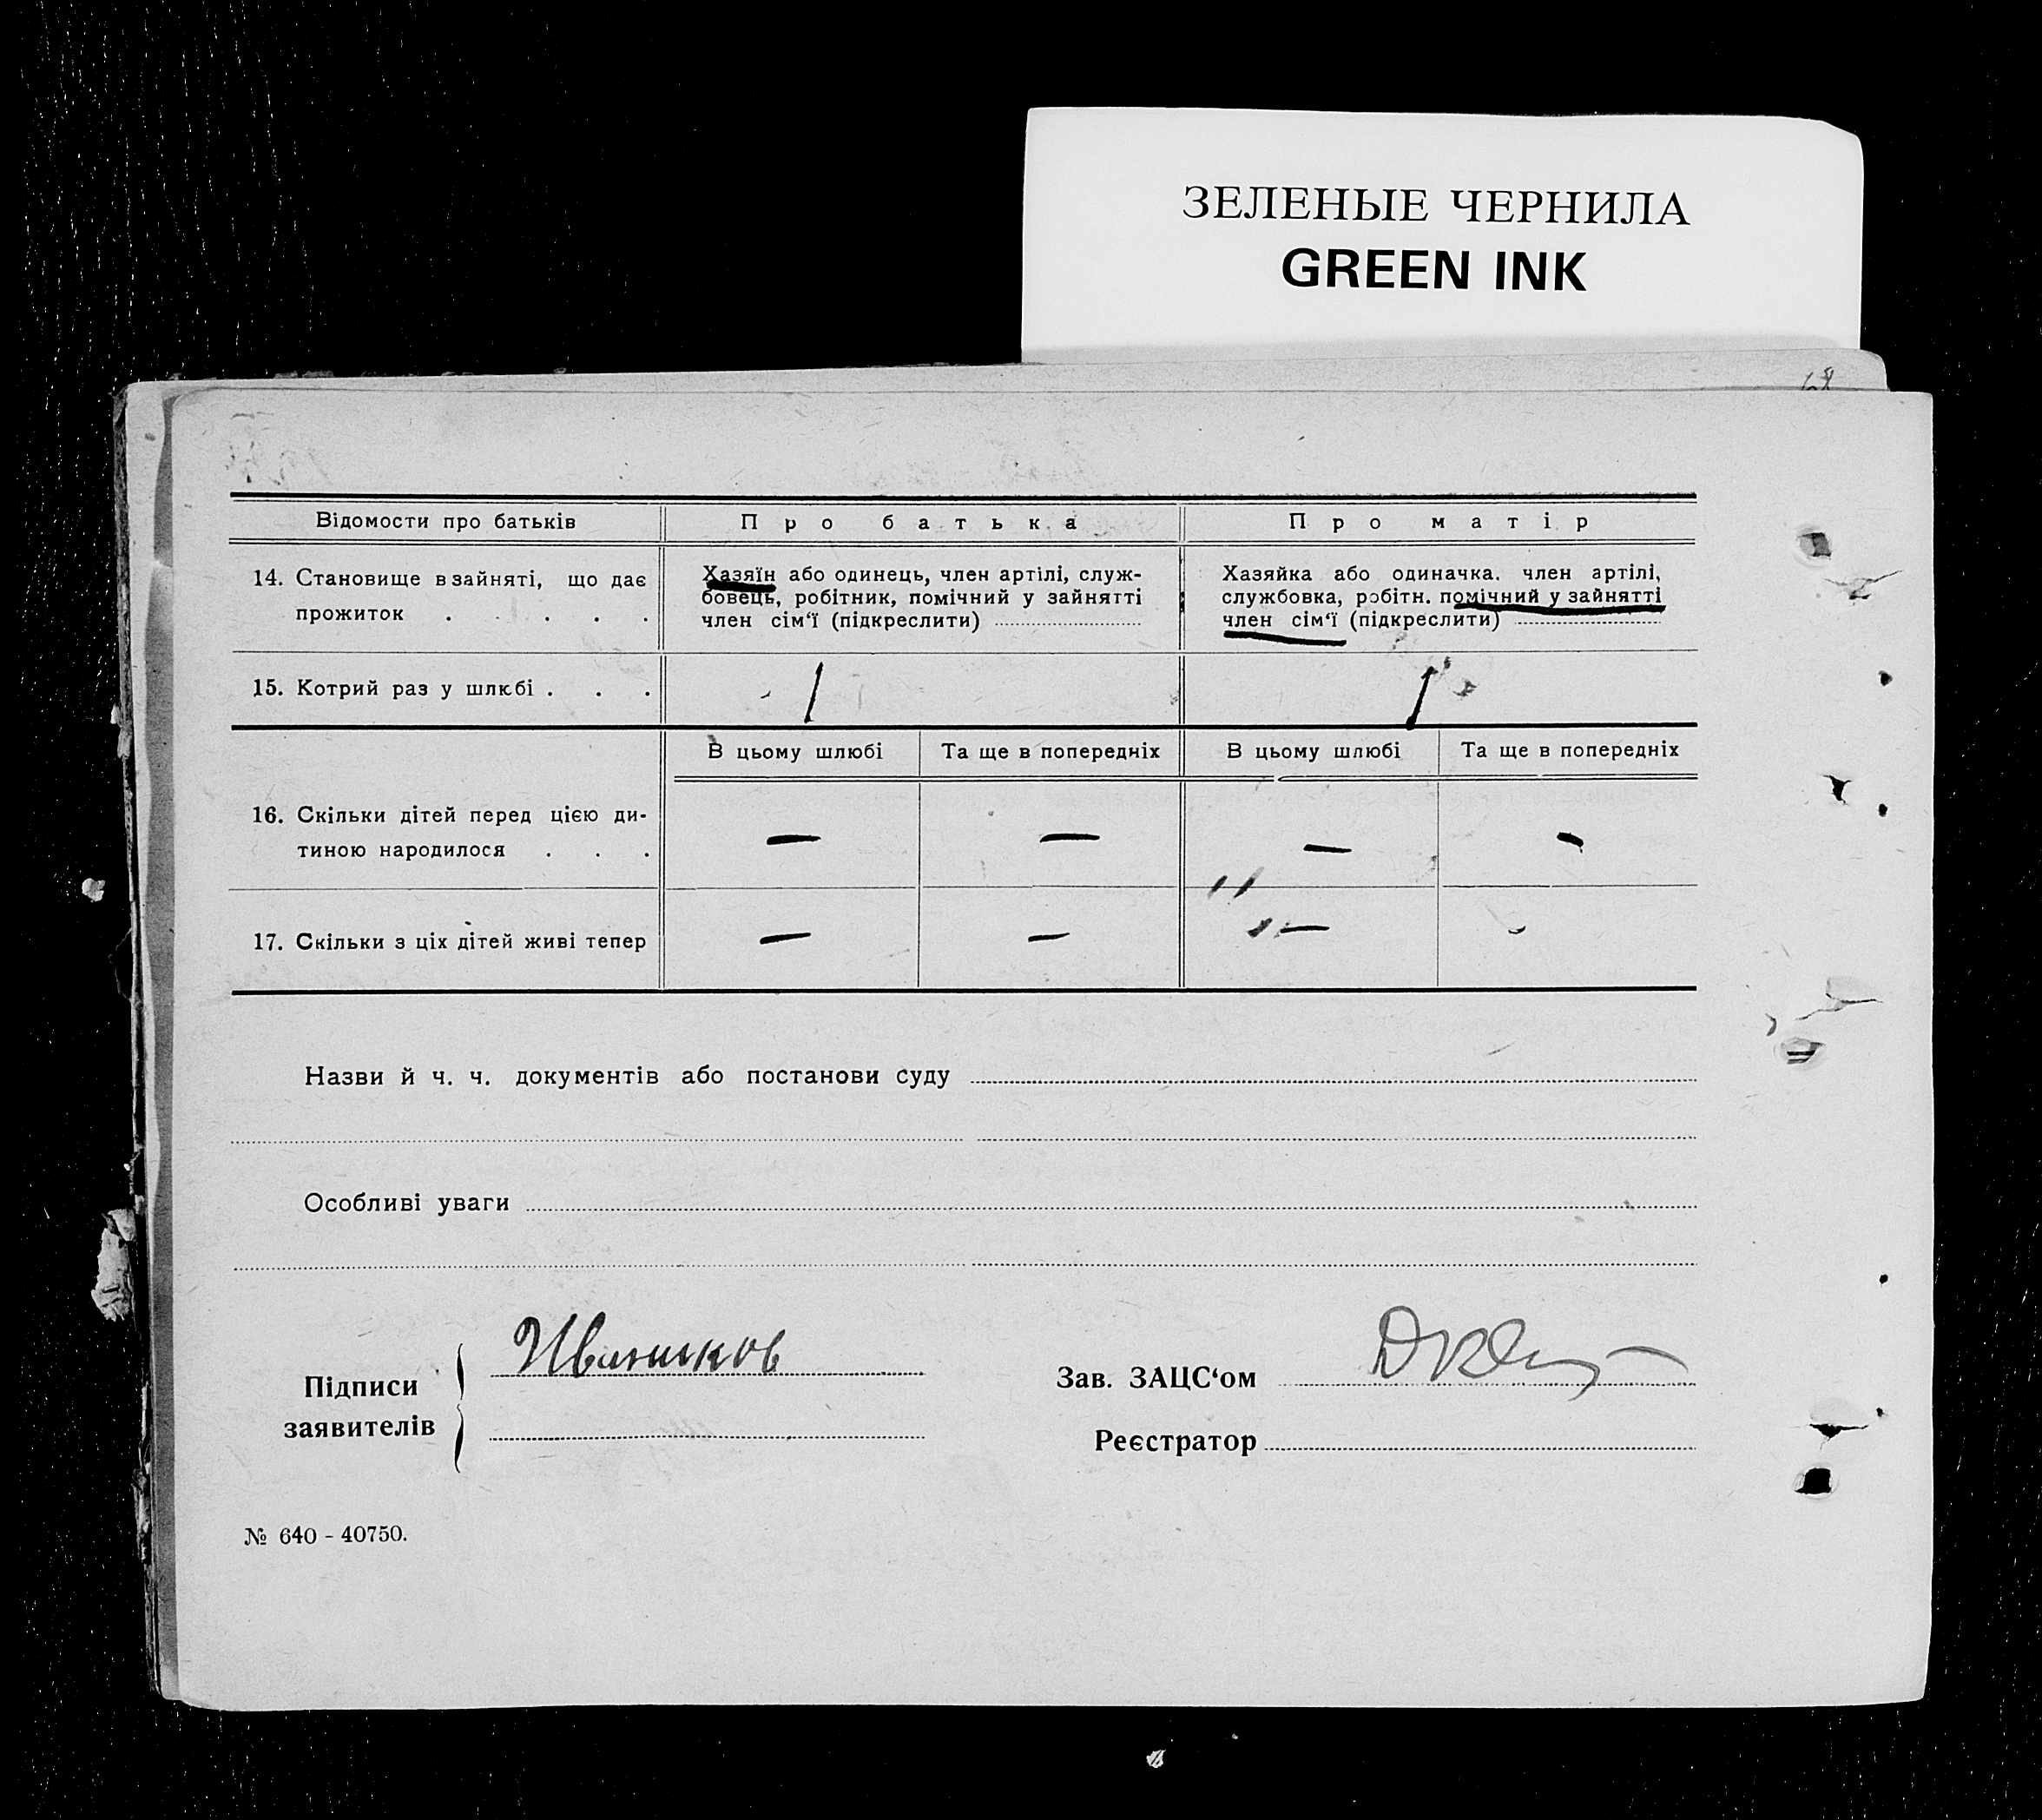 ЗЕЛЕНЫЕ ЧЕРНИЛА
GREEN INK
Відомости про батьків
Про батька
Про матір
14. Становище в зайняті, що дає
прожиток . . . . .
Хазяїн або одинець, член артілі, служ-
бовець, робітник, помічний у зайнятті
член сім‘ї (підкреслити)
Хазяйка або одиначка. член артілі,
службовка, робітн. помічний у зайнятті
член сім‘ї (підкреслити)
15. Котрий раз у шлюбі . . .
1
1
В цьому шлюбі
Та ще в попередніх
В цьому шлюбі
Та ще в попередніх
16. Скільки дітей перед цією ди-
тиною народилося . . .
— — — —
17. Скільки з ціх дітей живі тепер
— — — -
Назви й ч. ч. документів або постанови суду
Особливі уваги
Підписи
заявителів
Иваников
Зав. ЗАЦС‘ом
Реєстратор
№ 640 - 40750.